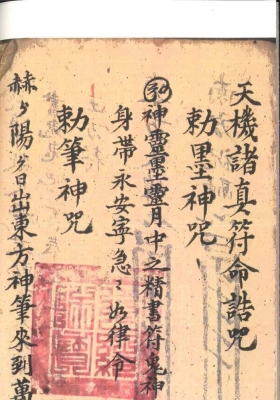 天機諸真符命誥咒
勅墨神咒
神靈墨靈月中之精書符鬼神
身帶永安寧急〻如律命
勅筆神咒
赫〻陽〻日出東方神筆來到萬